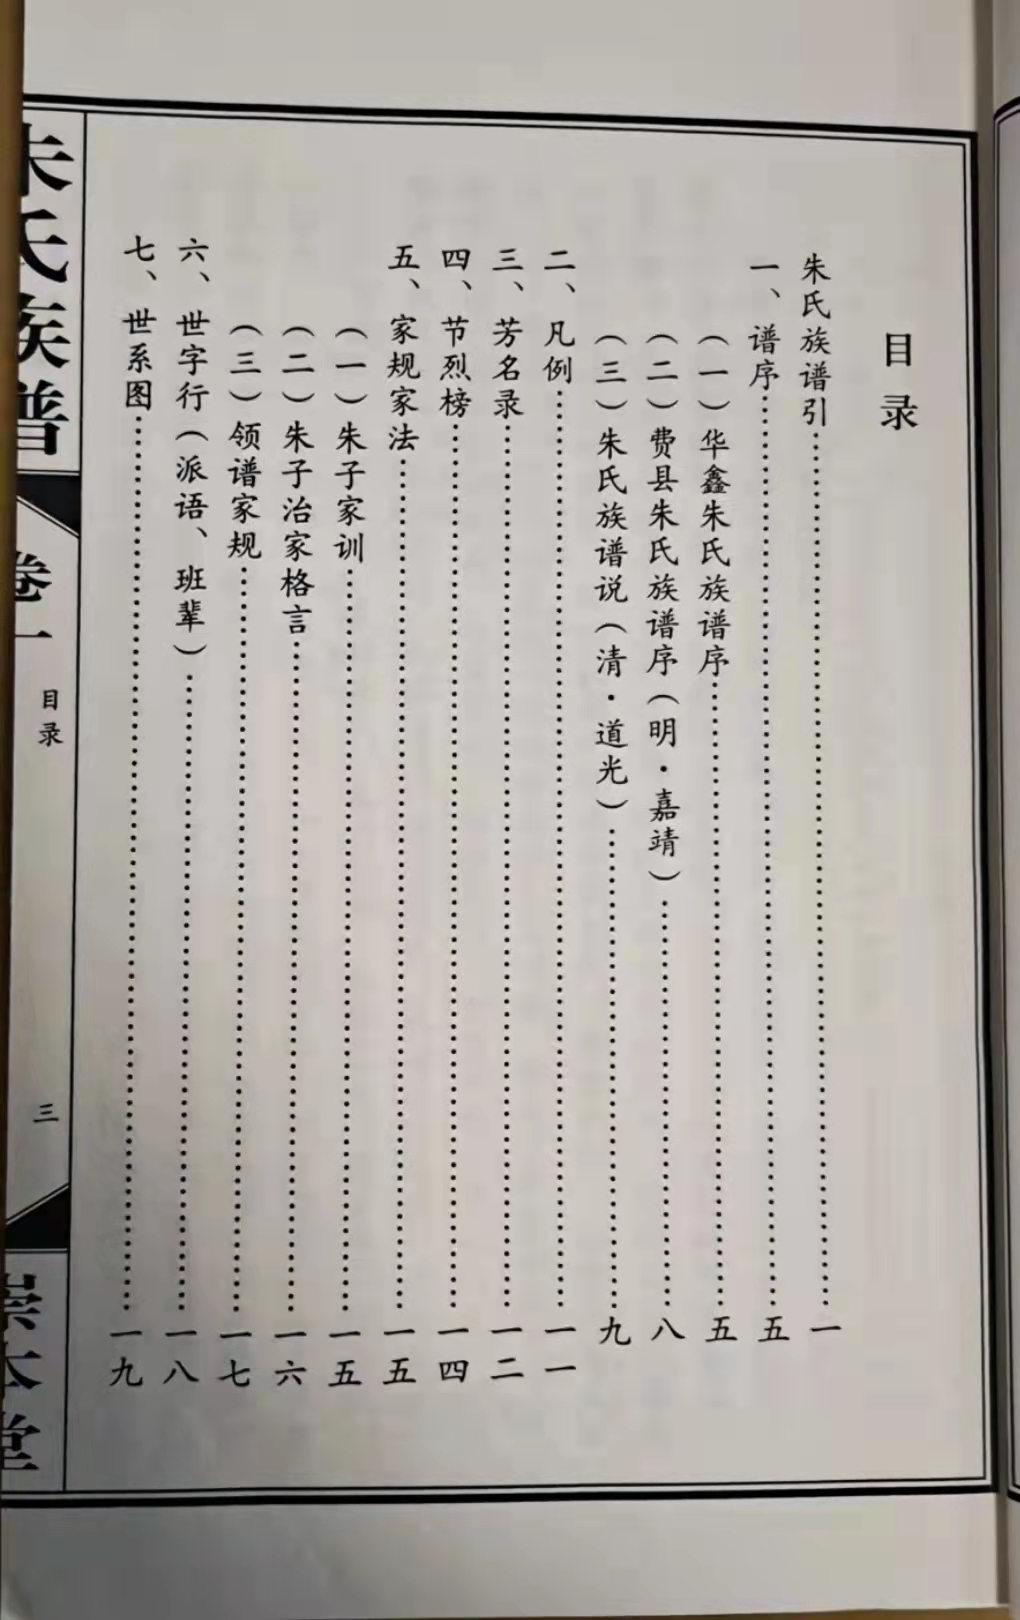 目录
朱氏族谱引……一
一、谱序……五
（一）华鑫朱氏族谱序……五
（二）费县朱氏族谱序（明·嘉靖）……八
（三）朱氏族谱说（清·道光）……九
二、凡例……一一
三、芳名录……一二
四、节烈榜……一四
五、家规家法……一五
（一）朱子家训……一五
（二）朱子治家格言……一六
（三）领谱家规……一七
六、世字行（派语、班辈）……一八
七、世系图……一九
朱氏族谱
卷一
目录
三
崇本堂